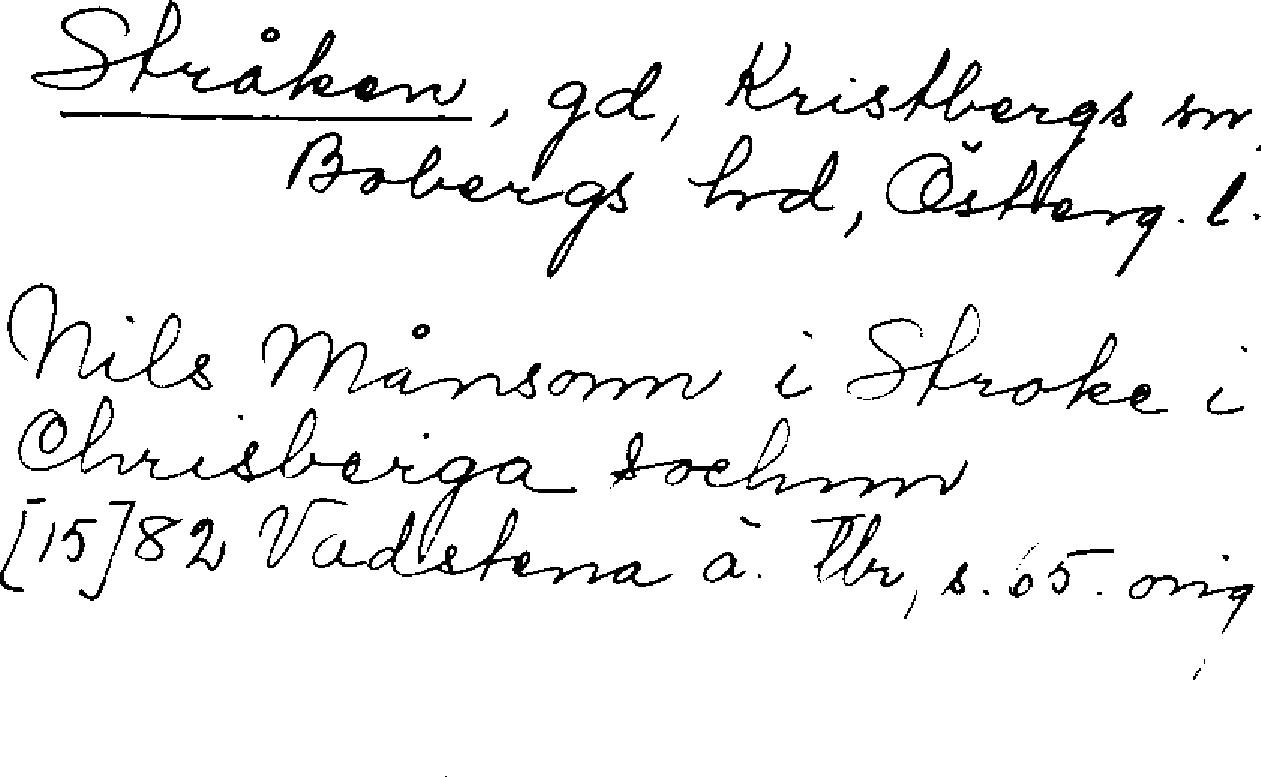 Stråken, gd, Kristbergs sn,
Bobergs hrd, Österg. l.
Nils Månsonn i Stroke i
Chrisberga sochnn
[15]82 Vadstena ä. Tbr, s. 65. orig